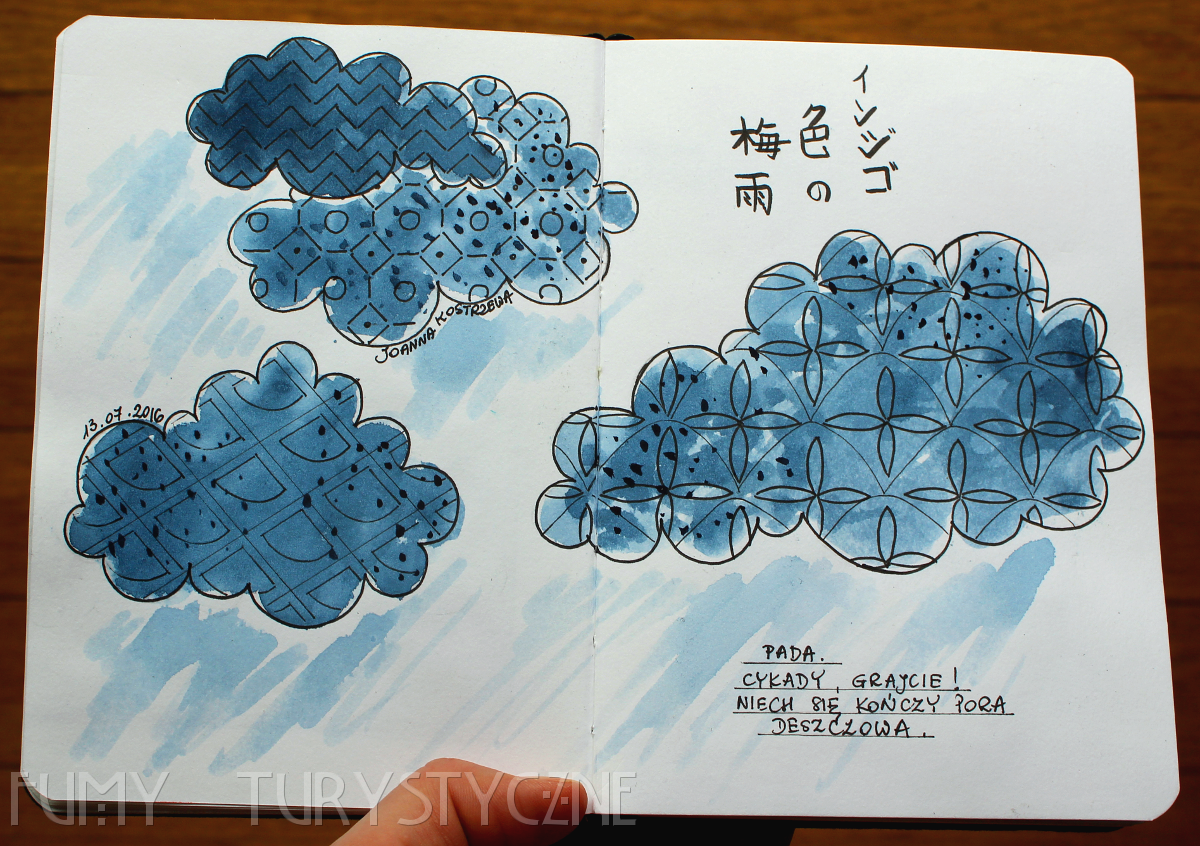 JOANNA KOSTRZEWA
13.07.2016
インジゴ
色の
梅雨
PADA.
CYKADY, GRAJCIE!
NIECH SIĘ KOŃCZY PORA
DESZCZOWA.
FUMY TURYSTYCZNE